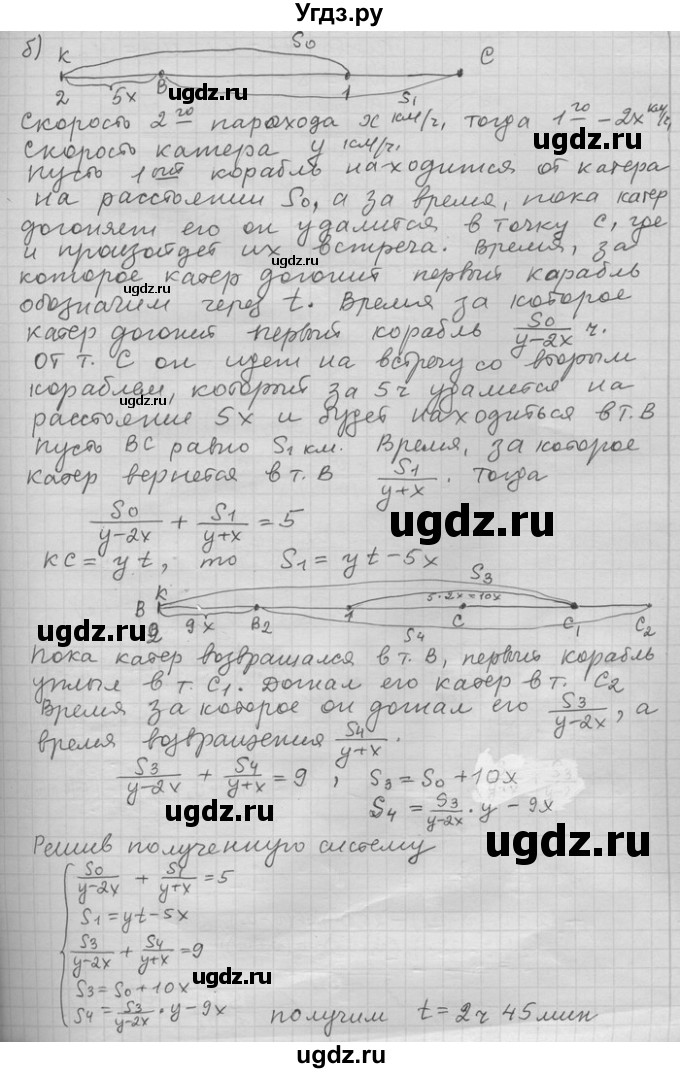 Угдз.ру
б)
S₀
K B C
2 5x 1 S₁
Скорость 2го парохода x км/ч, тогда 1го – 2x км/ч,
Скорость катера y км/ч.
Пусть 1ый корабль находится от катера
на расстоянии S₀, а за время, пока катер
догоняет его он удалится в точку C, где
и произойдет их встреча. Время, за
которое катер догонит первый карабль
обозначим через t. Время за которое
катер догонит первый корабль S₀/(y-2x) ч.
От т. C он идет на встречу со вторым
кораблем, который за 5ч удалится на
расстояние 5x и будет находиться в т. B
пусть BC равно S₁ км. Время, за которое
катер вернется в т. B S₁/(y+x). Тогда
S₀/(y-2x) + S₁/(y+x) = 5
KC = yt, то S₁ = yt - 5x
S₃
K 5·2x=10x
B B₂ 1 C C₁ C₂
2 9x S₄
Пока катер возвращался в т. B, первый корабль
уплыл в т. C₁. Догнал его катер в т. C₂
Время за которое он догнал его S₃/(y-2x), а
время возвращения S₄/(y+x).
S₃/(y-2x) + S₄/(y+x) = 9, S₃ = S₀ + 10x
S₄ = S₃/(y-2x) · y - 9x
Решив полученную систему
S₀/(y-2x) + S₁/(y+x) = 5
S₁ = yt - 5x
S₃/(y-2x) + S₄/(y+x) = 9
S₃ = S₀ + 10x
S₄ = S₃/(y-2x) · y - 9x получим t = 2ч 45мин
ugdz.ru
ugdz.ru
ugdz.ru
ugdz.ru
ugdz.ru
ugdz.ru
ugdz.ru
ugdz.ru
ugdz.ru
ugdz.ru
ugdz.ru
ugdz.ru